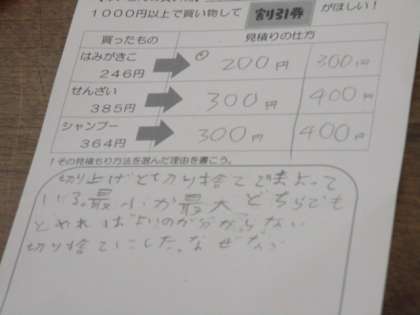 1000円以上で買い物して 割引券 がほしい!
買ったもの 見積りの仕方
はみがきこ
246円 200円 300円
せんざい
385円 300円 400円
シャンプー
364円 300円 400円
!その見積もり方法を選んだ理由を書こう。
切り上げと切り捨てでまよって
いる。最小か最大どちらでも
とめれ ばよいのか分からない
切り捨てにした。なぜなら